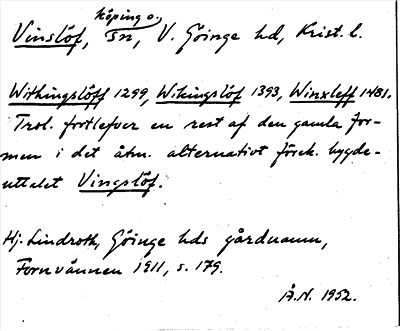 köping o.
Vinslöf, sn, V. Göinge hd, Krist. l.
Withingslöff 1299, Wikingslöf 1393, Winxleff 1481.
Trol. fortlefver en rest af den gamla for-
men i det åtm. alternativt förek. bygde-
uttalet Vingslöf.
Hj. Lindroth, Göinge hds gårdnamn,
Fornvännen 1911, s. 179.
Å.N. 1952.